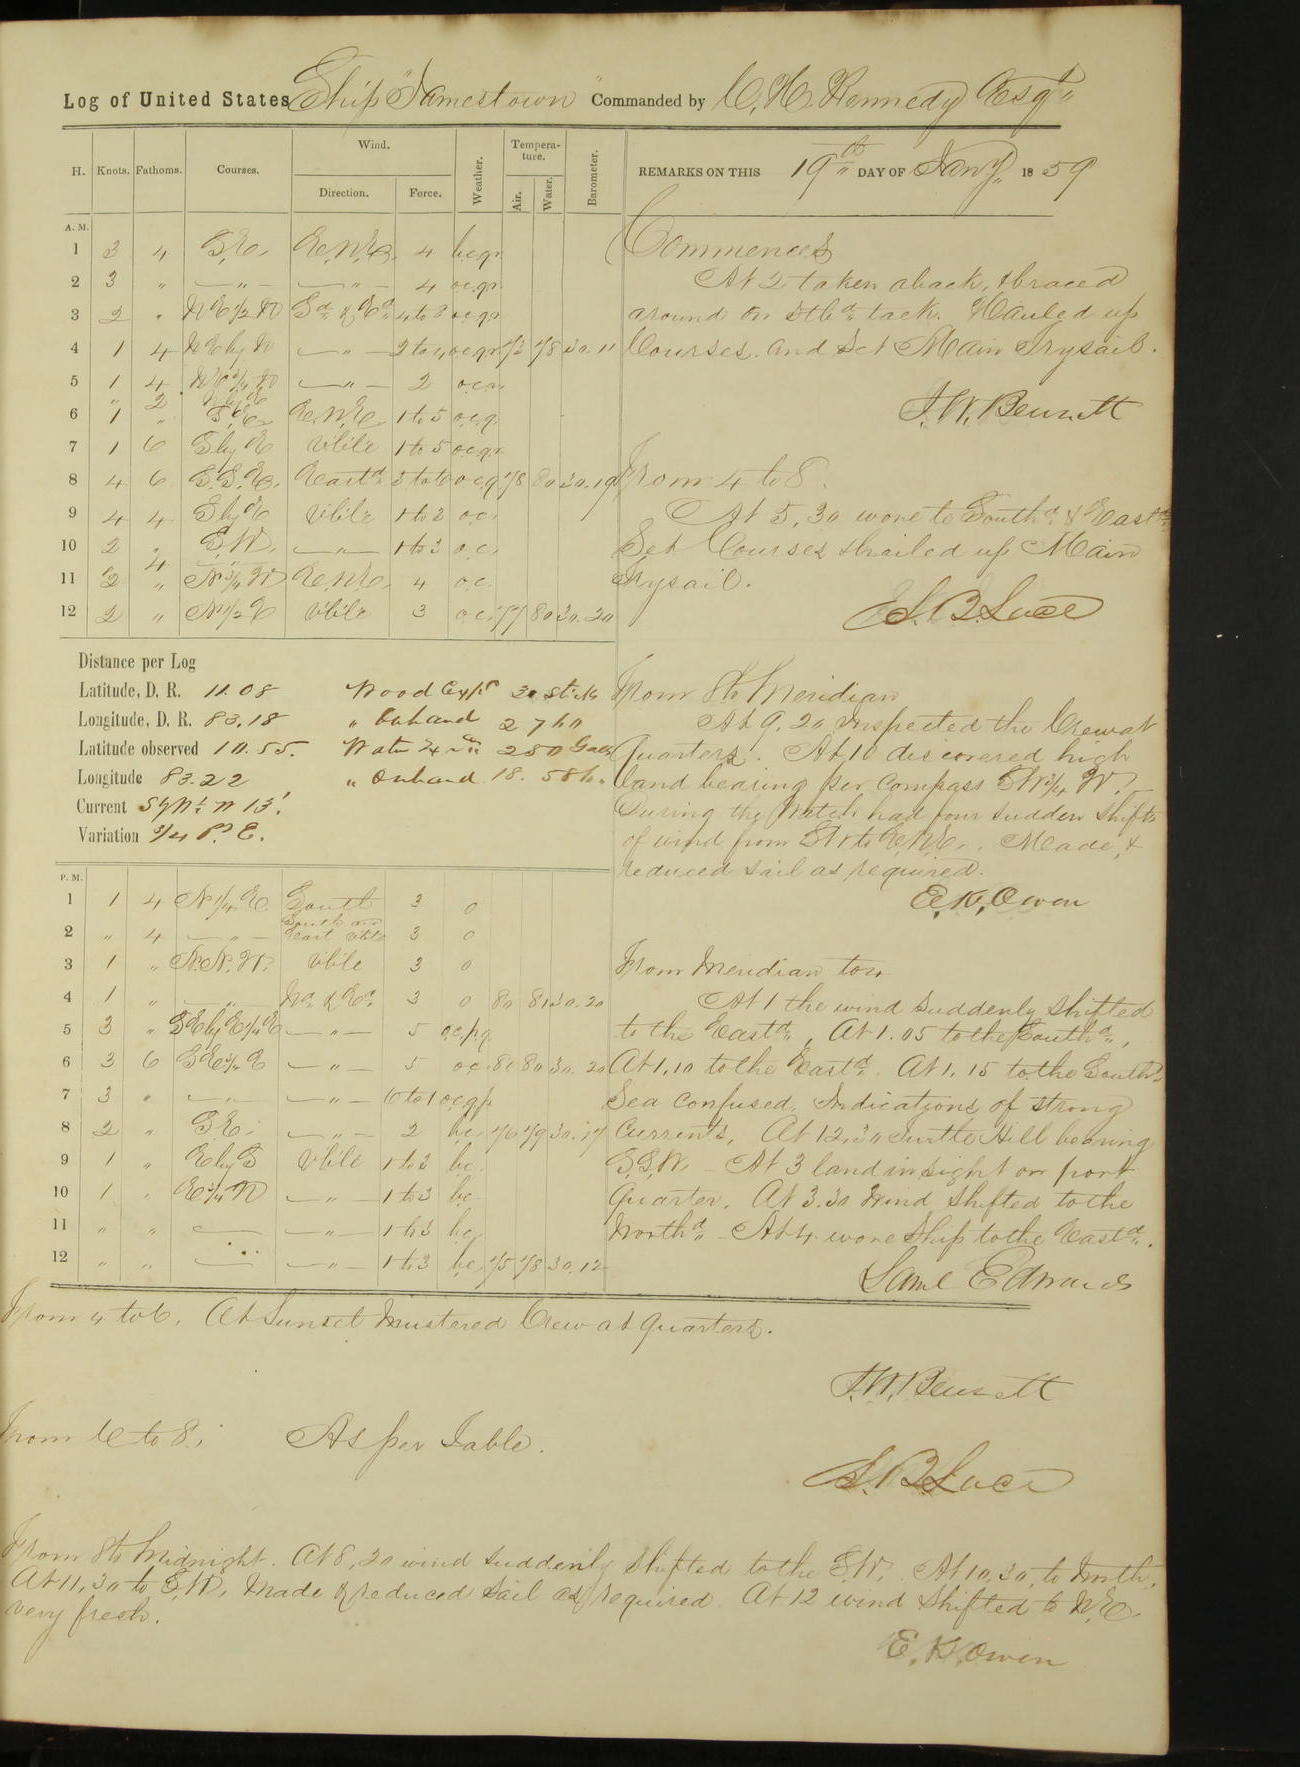 Log of United States Ship "Jamestown" Commanded by C. H. Kennedy Esqr
H. Knots. Fathoms. Courses. Wind. Direction. Force. Weather. Temperature. Air. Water. Barometer.
REMARKS ON THIS 19th DAY OF Jany. 1859
A. M.
1 3 4 S.E. E.N.E. 4 b.c.q.
2 3 " —"— —"— 4 o.c.q.
3 2 " N E 1/2 N Sd & Ed 4 to 3 o.c.q.
4 1 4 N E by N —"— 2 to 4 o.c.q. 78 30.11
5 1 4 —"— 2 o.c.
" 2
6 1 " S.E. E.N.E. 1 to 5 o.c.q.
7 1 6 S by E Vble 1 to 5 o.c.q.
8 4 6 S.S.E. Eastd 3 to 6 o.c.q. 78 80 30.19
9 4 4 S by E Vble 1 to 2 o.c.
10 2 " S.W. —"— 1 to 3 o.c.
" 4
11 2 " N 3/4 W E.N.E. 4 o.c.
12 2 " N 1/2 E Vble 3 o.c. 77 80 30.20
Commences
At 2 taken aback, & braced
around on Stbd tack. Hauled up
Courses. and Set Main Trysail.
J. W. Bennett
From 4 to 8.
At 5,30 wore to Southd & Eastd
Set Courses & hailed up Main
Trysail.
S. B. Luce
Distance per Log
Latitude, D. R. 11.08 Wood Expd 30 sticks
Longitude, D. R. 83.18 " Onhand 2760
Latitude observed 10.55. Water 250 Galls
Longitude 83.22 " Onhand 18.586 "
Current
Variation 3/4 Pt E.
From 8 to Meridian
At 9,20 inspected the Crew at
Quarters. At 10 discovered high
land bearing per Compass SW 3/4 W.
During the Watch had four sudden shifts
of wind from SW to ENE. Made, &
reduced sail as required.
E. K. Owen
P. M.
1 1 4 N 1/4 E South 3 o
2 " 4 —"— South and East Vble 3 o
3 1 " N.N.W. Vble 3 o
4 1 " —"— Nd & Ed 3 o 80 81 30.20
5 3 " SE by E 1/4 E —"— 5 o.c.p.q.
6 3 6 —"— 5 o.c. 80 80 30.20
7 3 " —"— —"— 6 to 1 o.c.q.p.
8 2 " S.E. —"— 2 b.c. 76 79 30.17
9 1 " E by S Vble 1 to 3 b.c.
10 1 " E 3/4 N —"— 1 to 3 b.c.
11 " " — —"— 1 to 3 b.c.
12 " " — —"— 1 to 3 b.c. 75 78 30.12
From Meridian to 4
At 1 the wind suddenly shifted
to the Eastd, At 1.05 to the Southd,
At 1,10 to the Eastd. At 1,15 to the Southd
Sea confused. Indications of strong
Currents. At 12,30 Turtle Hill bearing
S.S.W. — At 3 land in sight on port
Quarter. At 3.30 Wind shifted to the
Northd — At 4 wore Ship to the Eastd.
Saml Edwards
From 4 to 6. At Sunset Mustered Crew at quarters.
J. W. Bennett
From 6 to 8. As per Table.
S. B. Luce
From 8 to Midnight. At 8,20 wind suddenly shifted to the S.W. At 10,30, to North,
At 11,30 to S.W. Made & reduced Sail as required. At 12 wind shifted to N.E.
very fresh.
E. K. Owen